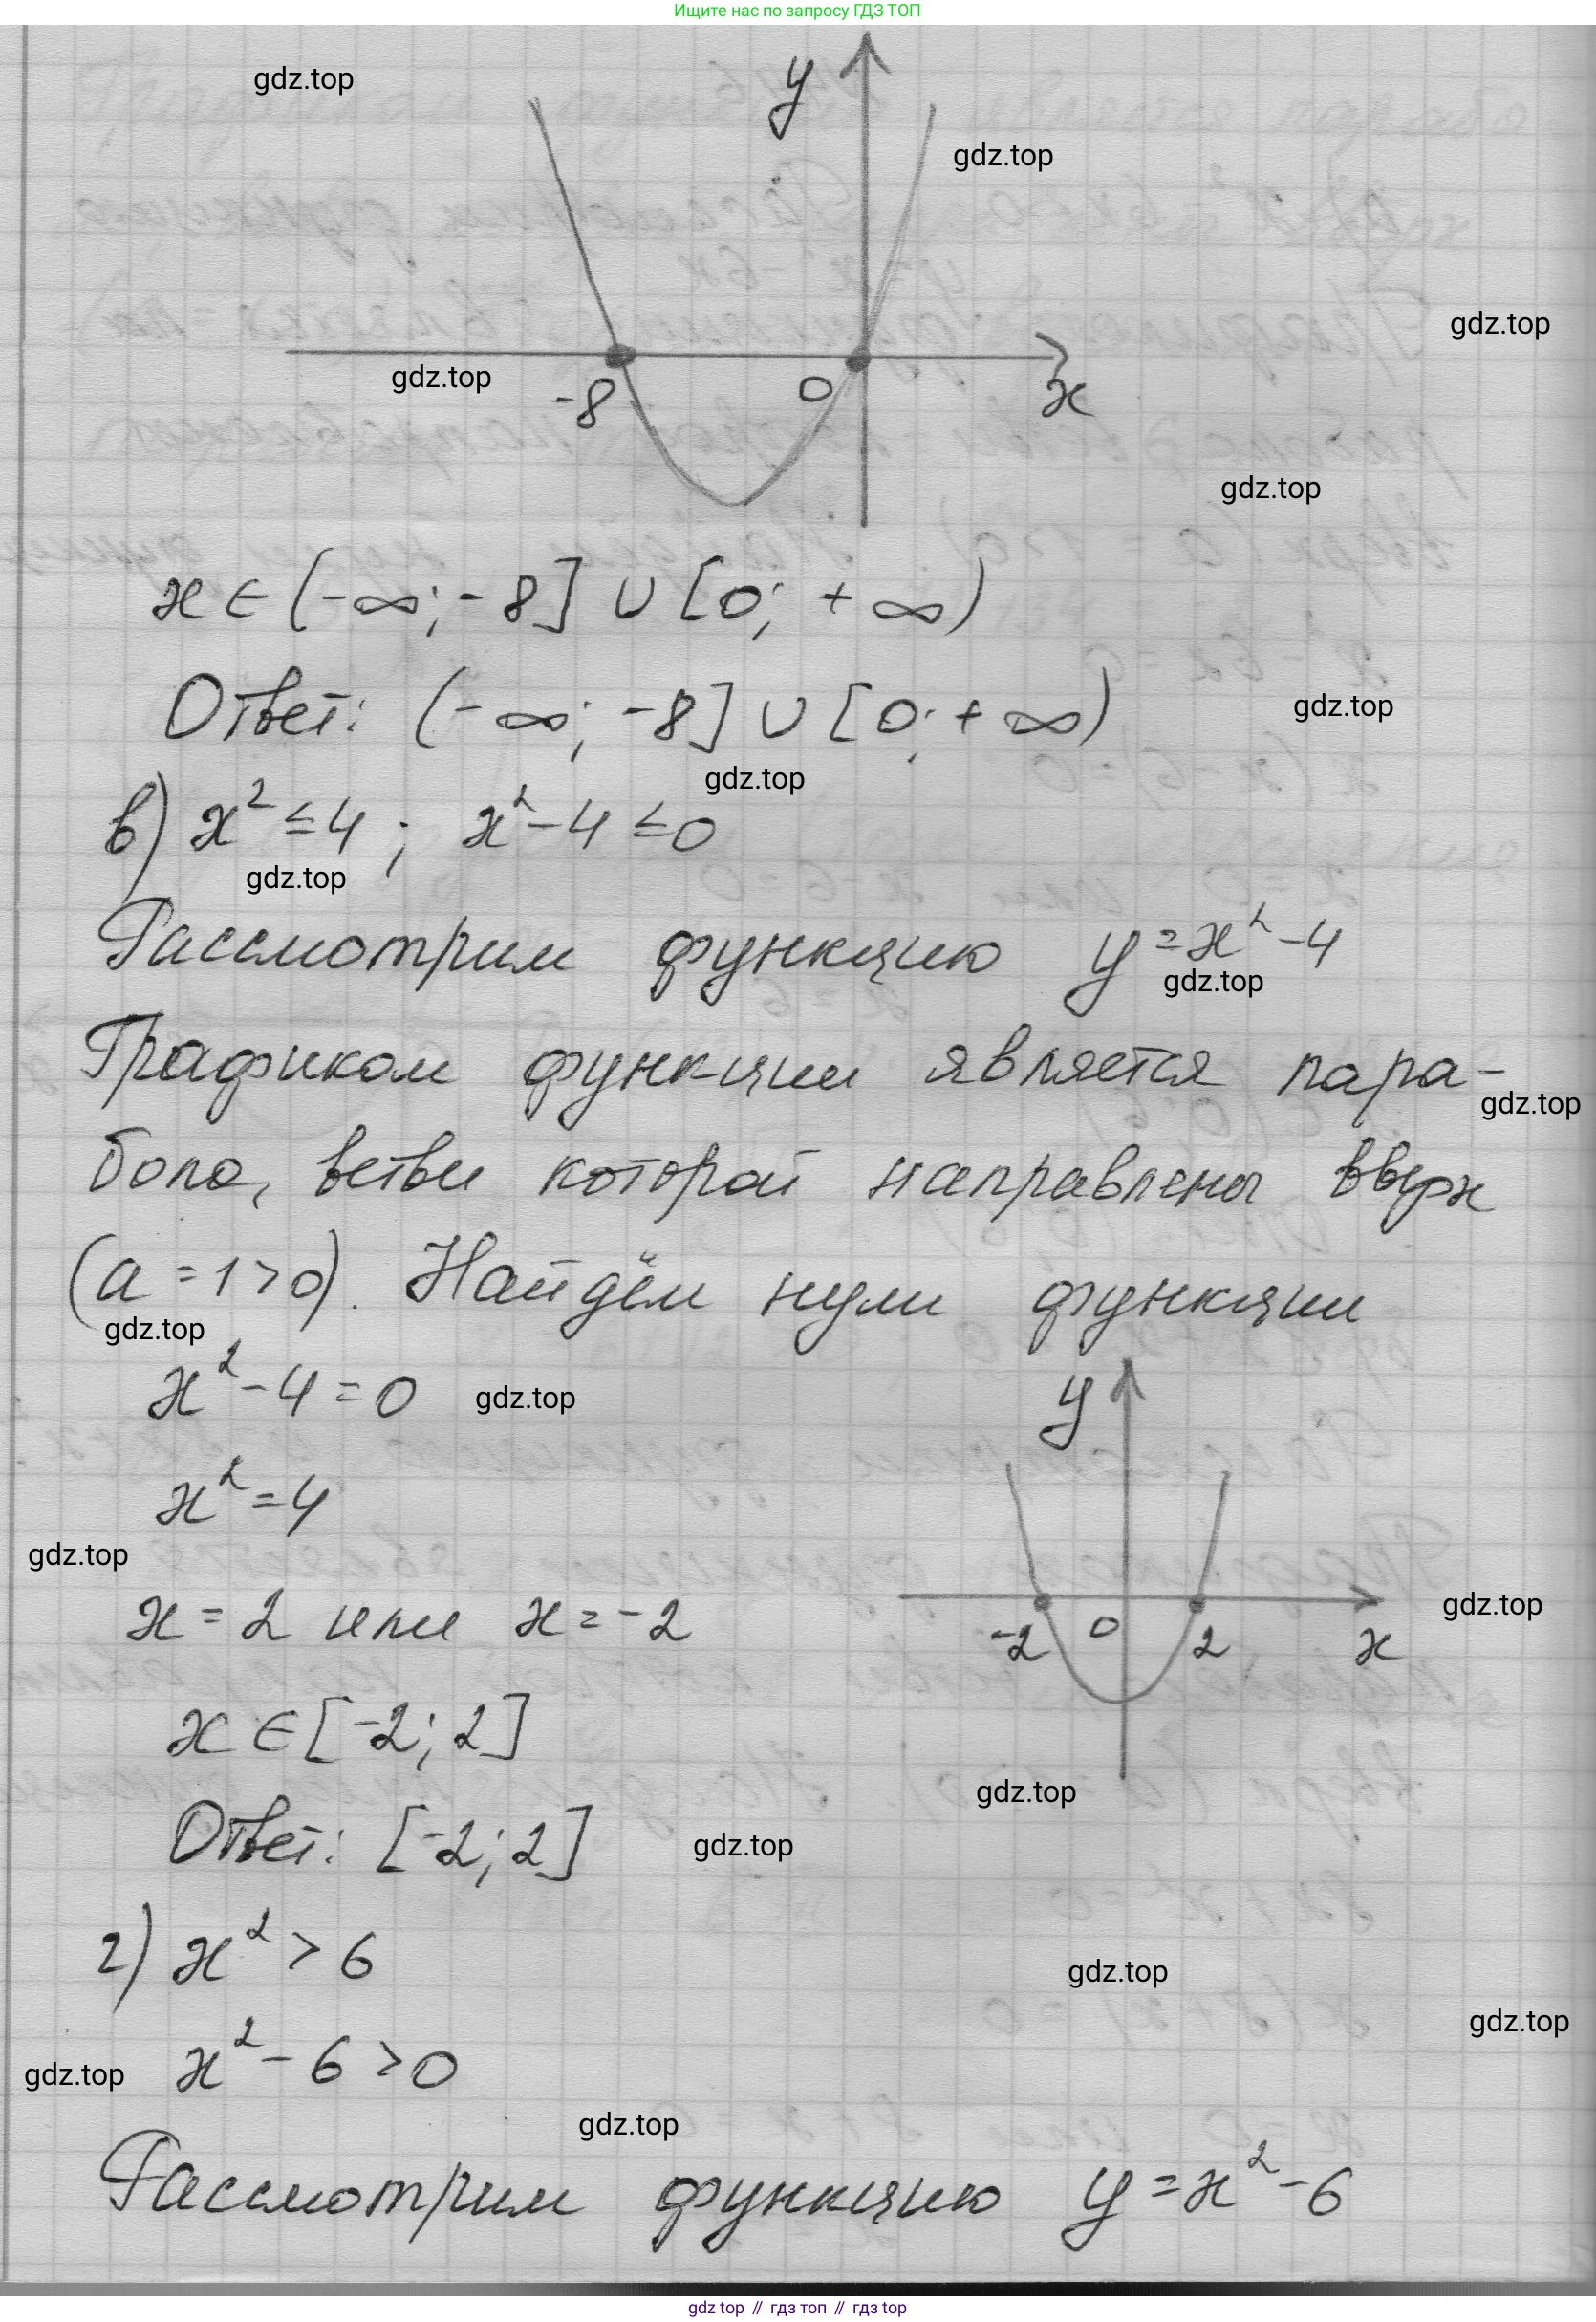 Ищите нас по запросу ГДЗ ТОП
gdz.top
y
gdz.top
gdz.top
gdz.top
-8
0
x
gdz.top
x ∈ (-∞; -8] ∪ [0; +∞)
Ответ: (-∞; -8] ∪ [0; +∞)
gdz.top
gdz.top
в) x² ≤ 4; x² - 4 ≤ 0
gdz.top
Рассмотрим функцию y = x² - 4
gdz.top
Графиком функции является пара-
gdz.top
бола, ветви которой направлены вверх
(a = 1 > 0). Найдём нули функции
gdz.top
x² - 4 = 0
gdz.top
y
x² = 4
gdz.top
gdz.top
x = 2 или x = -2
-2
0
2
x
x ∈ [-2; 2]
gdz.top
Ответ: [-2; 2]
gdz.top
г) x² > 6
gdz.top
gdz.top
x² - 6 > 0
gdz.top
gdz.top
Рассмотрим функцию y = x² - 6
gdz top // гдз топ // гдз top